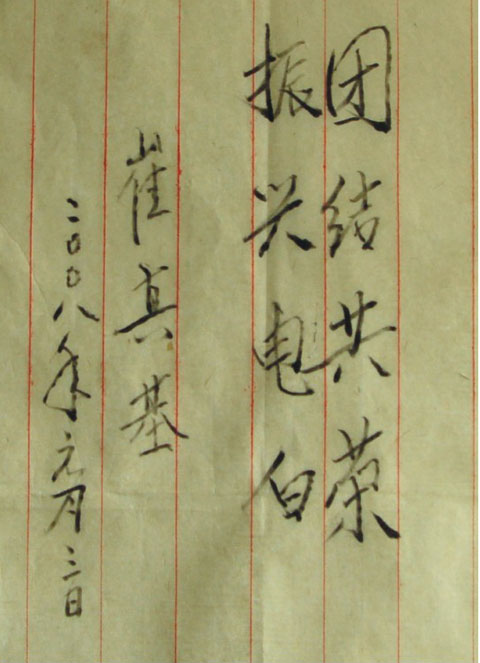 团结共荣
振兴电白
崔真基
二00八年元月三日